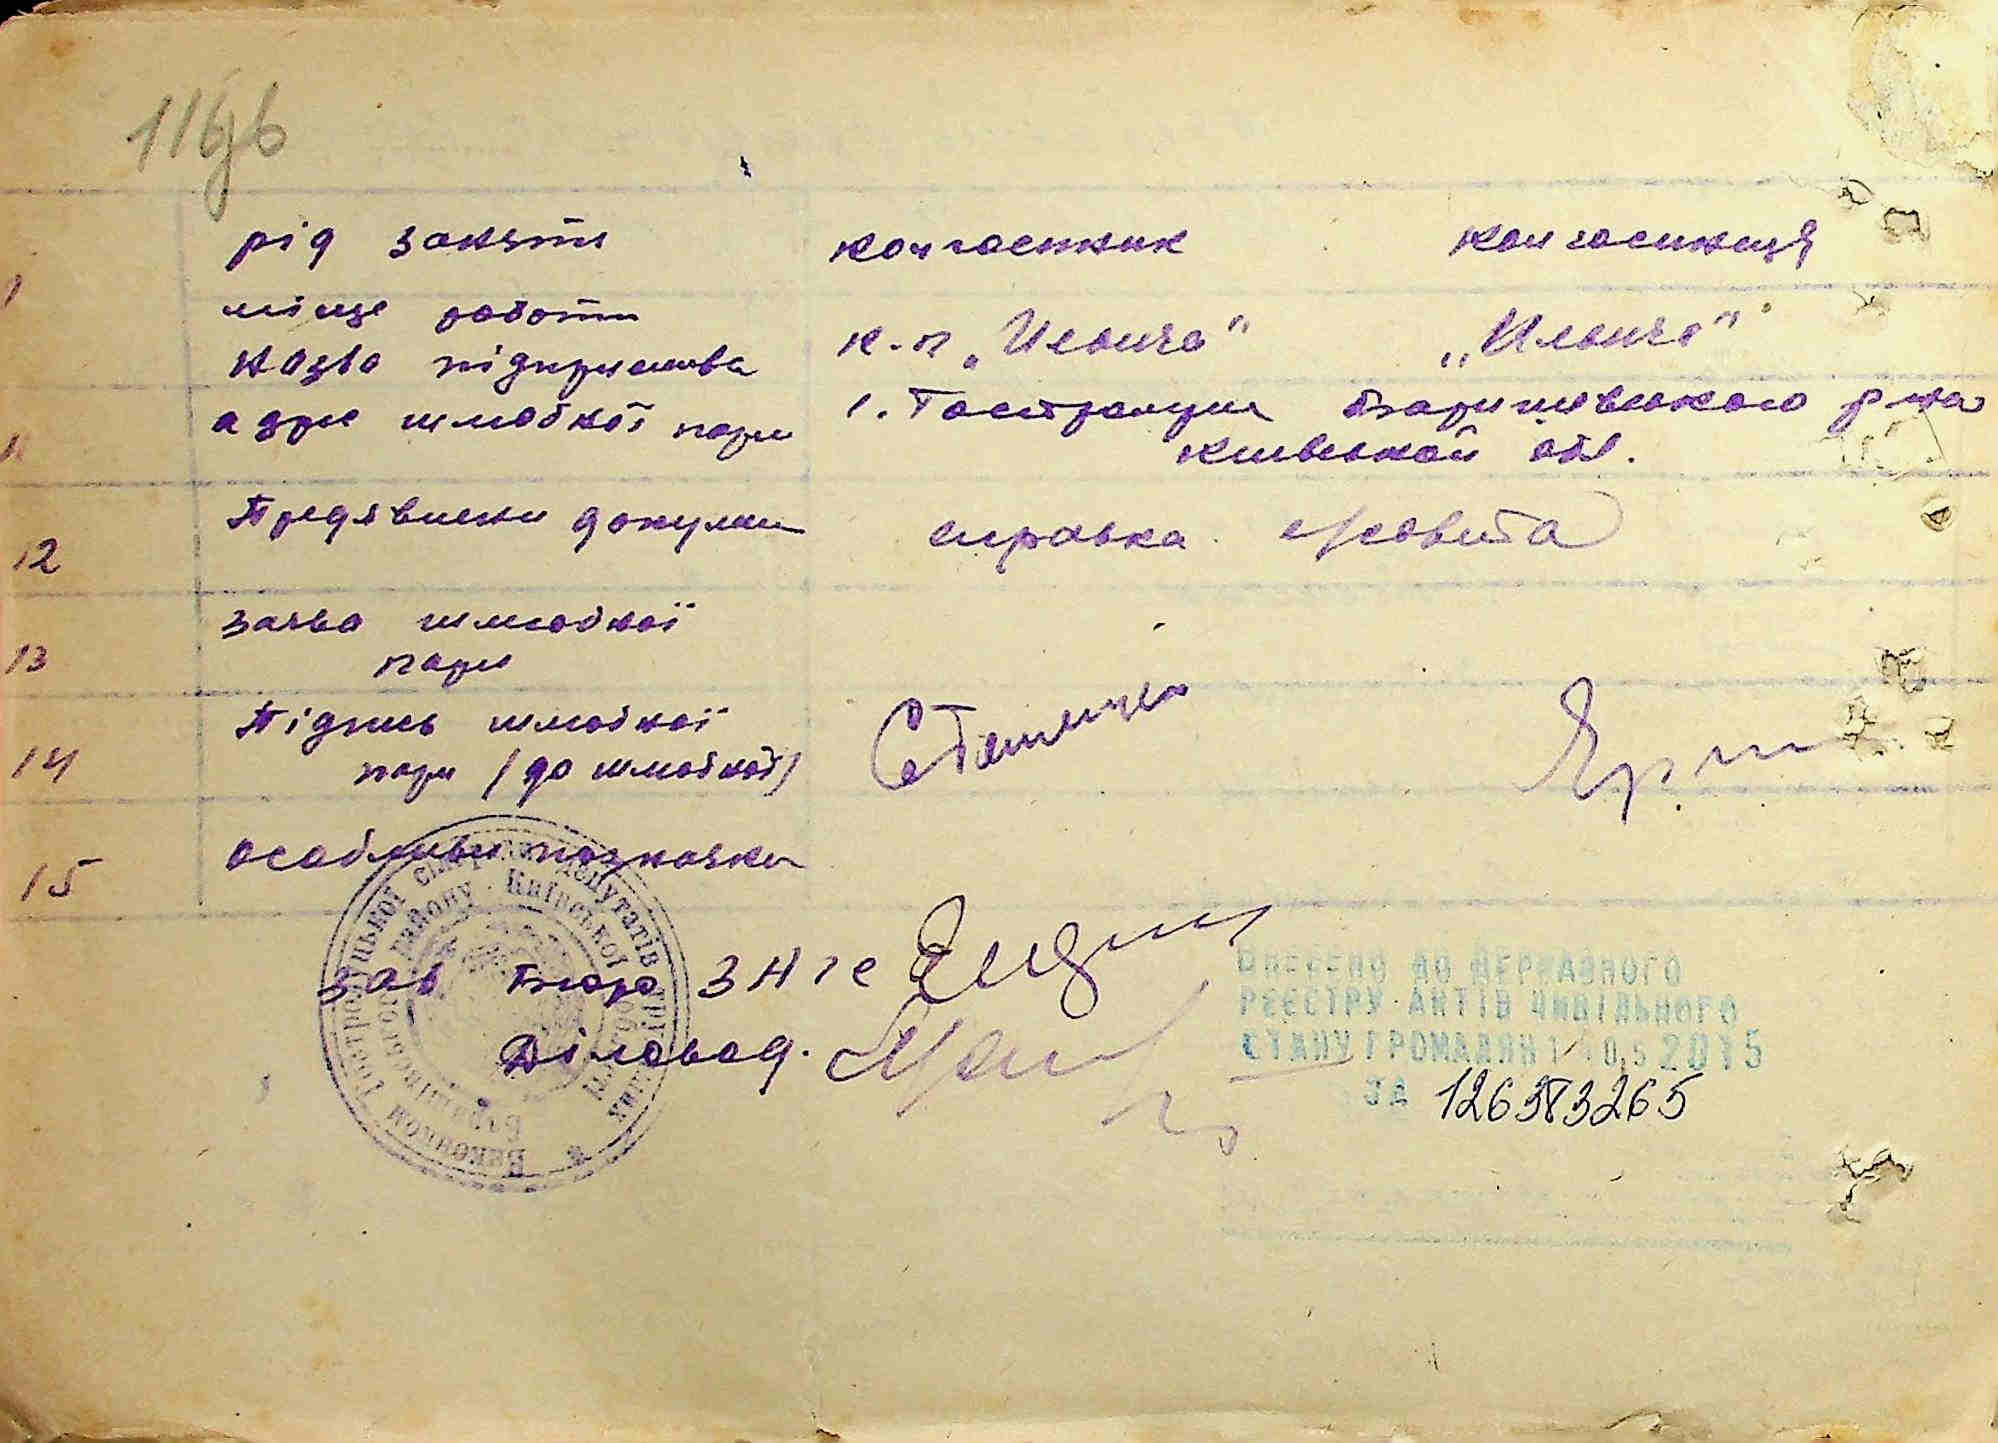 116зв
рід заняти колгоспник колгоспниця
місце роботи
назва підприємства к-п „Ильича" „Ильича"
адрес шлюбної пари с. Гостролуция Баришивського р-на
київської обл.
12 Предявлени докумен справка с/совита
13 заява шлюбної
пари
14 Підпись шлюбної
пари (до шлюбної)
15 особливи позначки
зав бюро ЗАГС
Діловод.
Виконком Гостролуцької сільради депутатів трудящих
району Київської області
ВНЕСЕНО ДО ДЕРЖАВНОГО
РЕЄСТРУ АКТІВ ЦИВІЛЬНОГО
СТАНУ ГРОМАДЯН 2015
ЗА 126383265